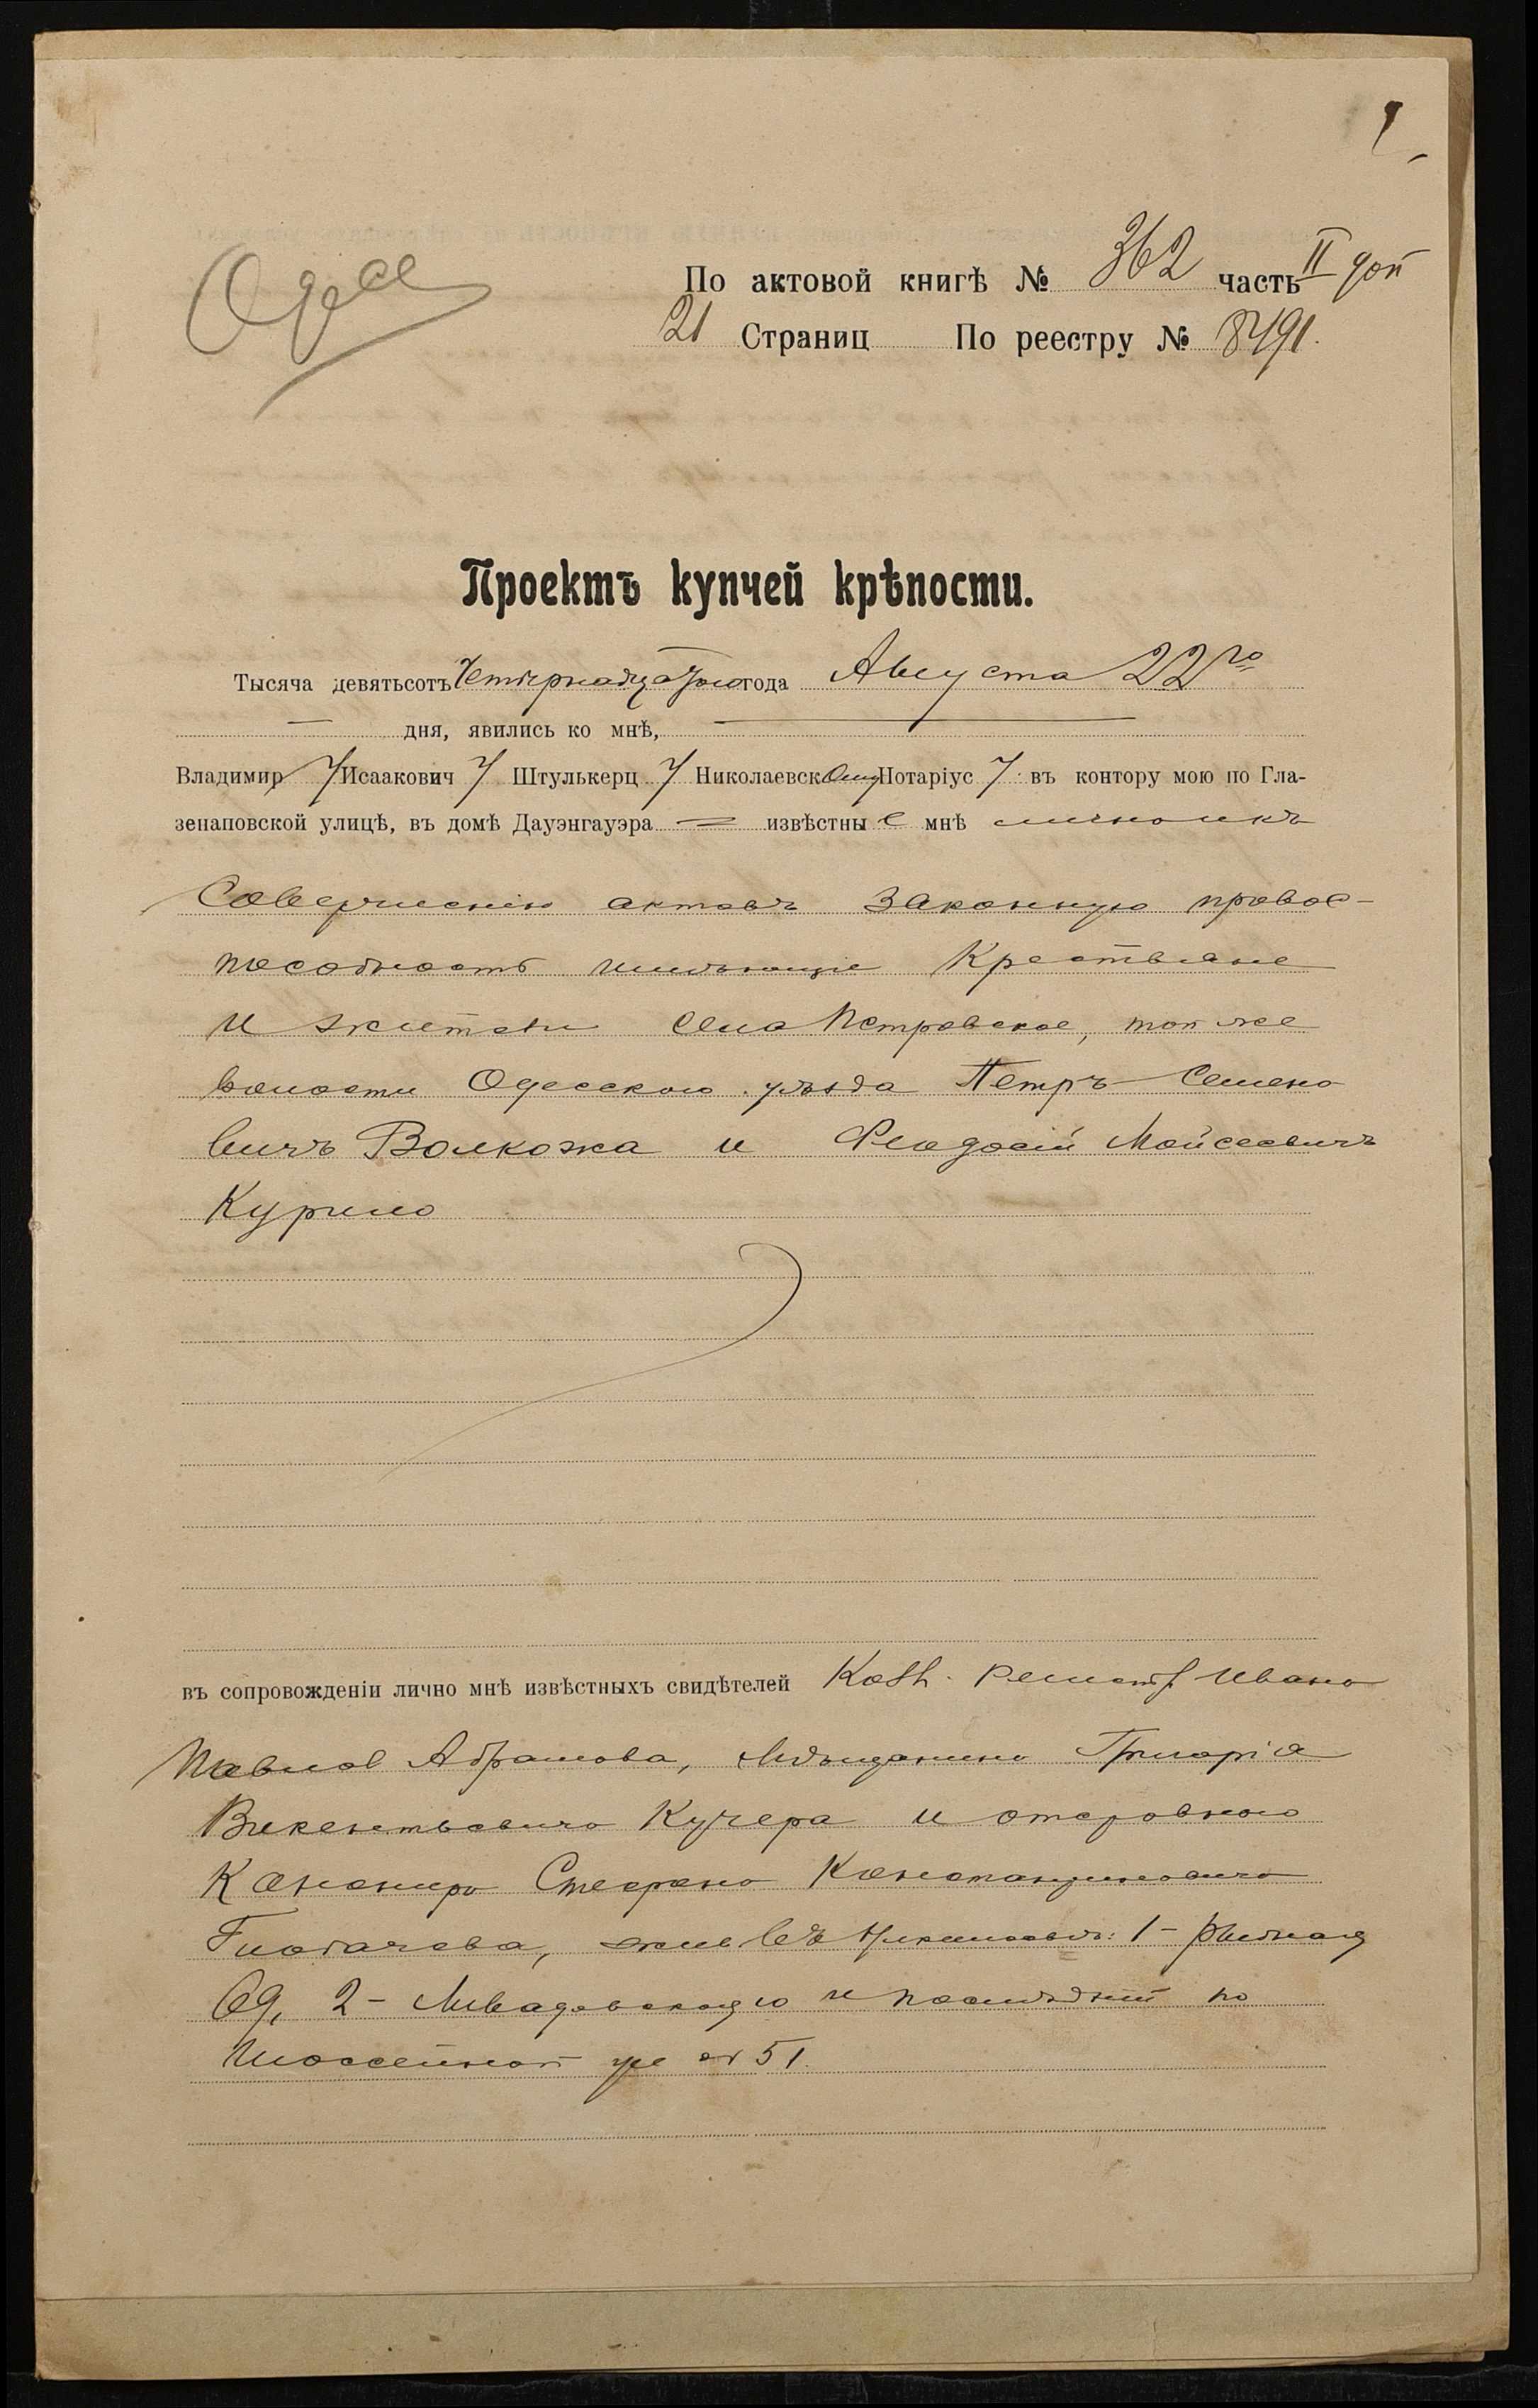 1
Одес
По актовой книгѣ № 362 часть II доп
21 Страниц По реестру № 8491.
Проектъ купчей крѣпости.
Тысяча девятьсотъ Четырнадцатого года Августа 22го
дня, явились ко мнѣ,
Владимир Исаакович Штулькерц Николаевском Нотаріус въ контору мою по Гла-
зенаповской улицѣ, въ домѣ Дауэнгауэра извѣстные мнѣ лично и къ
Совершенію актовъ законную правос-
пособность имѣющіе Крестьяне
и жители села Петровское, той же
волости Одесского уѣзда Петръ Семено
вичъ Волкожа и Феодосій Мойсеевичъ
Курило
въ сопровожденіи лично мнѣ извѣстныхъ свидѣтелей Ивана
Павлов Абрамова, Мѣщанина Григорія
Викентьевича Кучера и
Канонира Стефана Константиновича
в Николаевѣ: 1- Рыбная
69, 2- и послѣдній по
Шоссейной ул № 51.